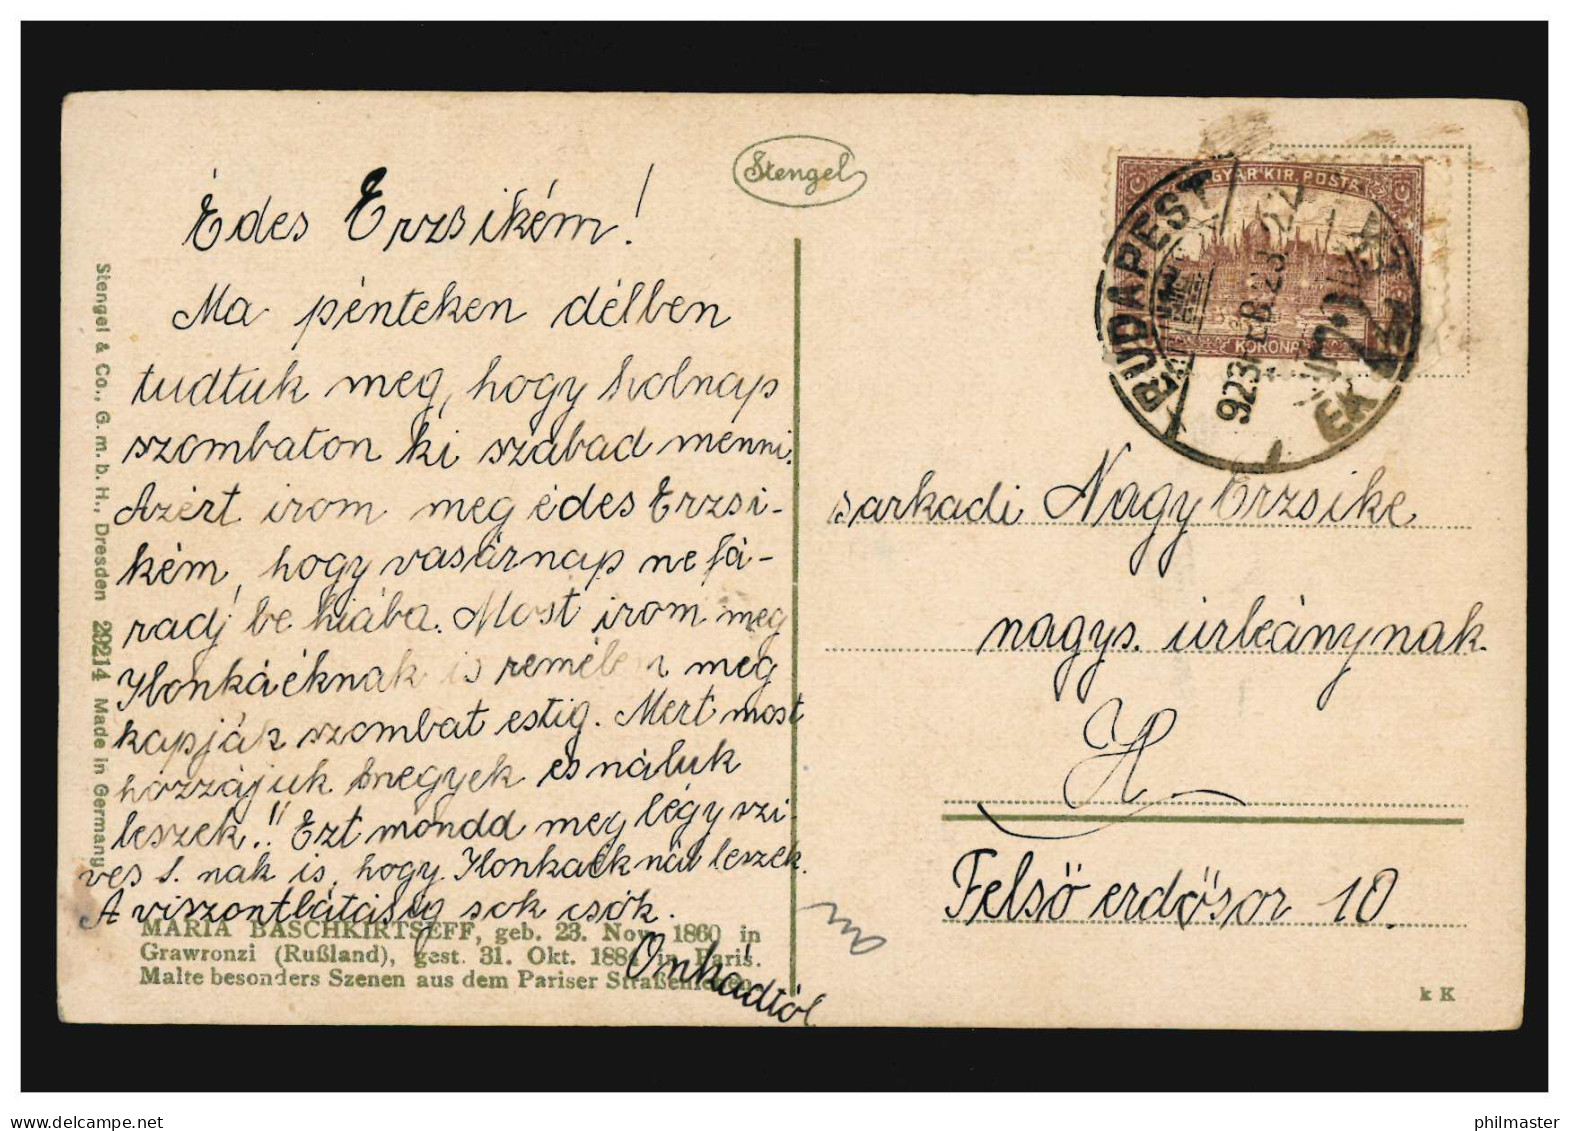 Stengel
Édes Erzsikém!
Ma pénteken délben
tudtuk meg, hogy holnap
szombaton ki szabad menni.
Azért irom meg édes Erzsi-
kém, hogy vasárnap ne fá-
radj be hiába. Most irom meg
Ilonkáéknak is remélem meg
kapják szombat estig. Mert most
hozzájuk megyek es náluk
leszek.!! Ezt mondd meg légy szi-
ves S. nak is, hogy Ilonkaéknál leszek.
A viszontlátásig sok csók.
Onkádtól
MARIA BASCHKIRTSEFF, geb. 23. Nov. 1860 in
Grawronzi (Rußland), gest. 31. Okt. 1884 in Paris.
Malte besonders Szenen aus dem Pariser Straßenleben.
Stengel & Co., G. m. b. H., Dresden 29214 Made in Germany
MAGYAR KIR. POSTA
KORONA
BUDAPEST
923
sarkadi Nagy Erzsike
nagys. úrleánynak
H
Felső erdősor 10.
k K
philmaster